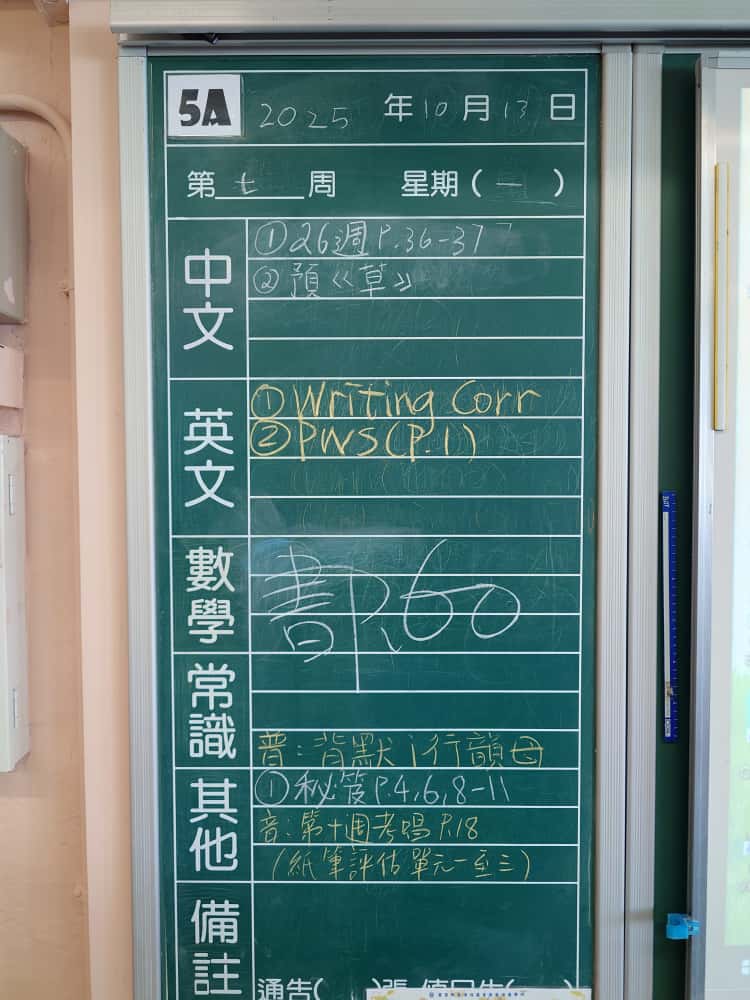 5A 2025 年 10 月 13 日
第 七 周 星期 ( 一 )
中文
① 26週 P.36-37
② 預《草》
英文
① Writing Corr
② PWS (P.1)
數學
書P.60
常識
普：背默 i行韻母
其他
① 秘笈P.4,6,8-11
音：第十週考唱 P.18
(紙筆評估單元一至三)
備註
通告( )張